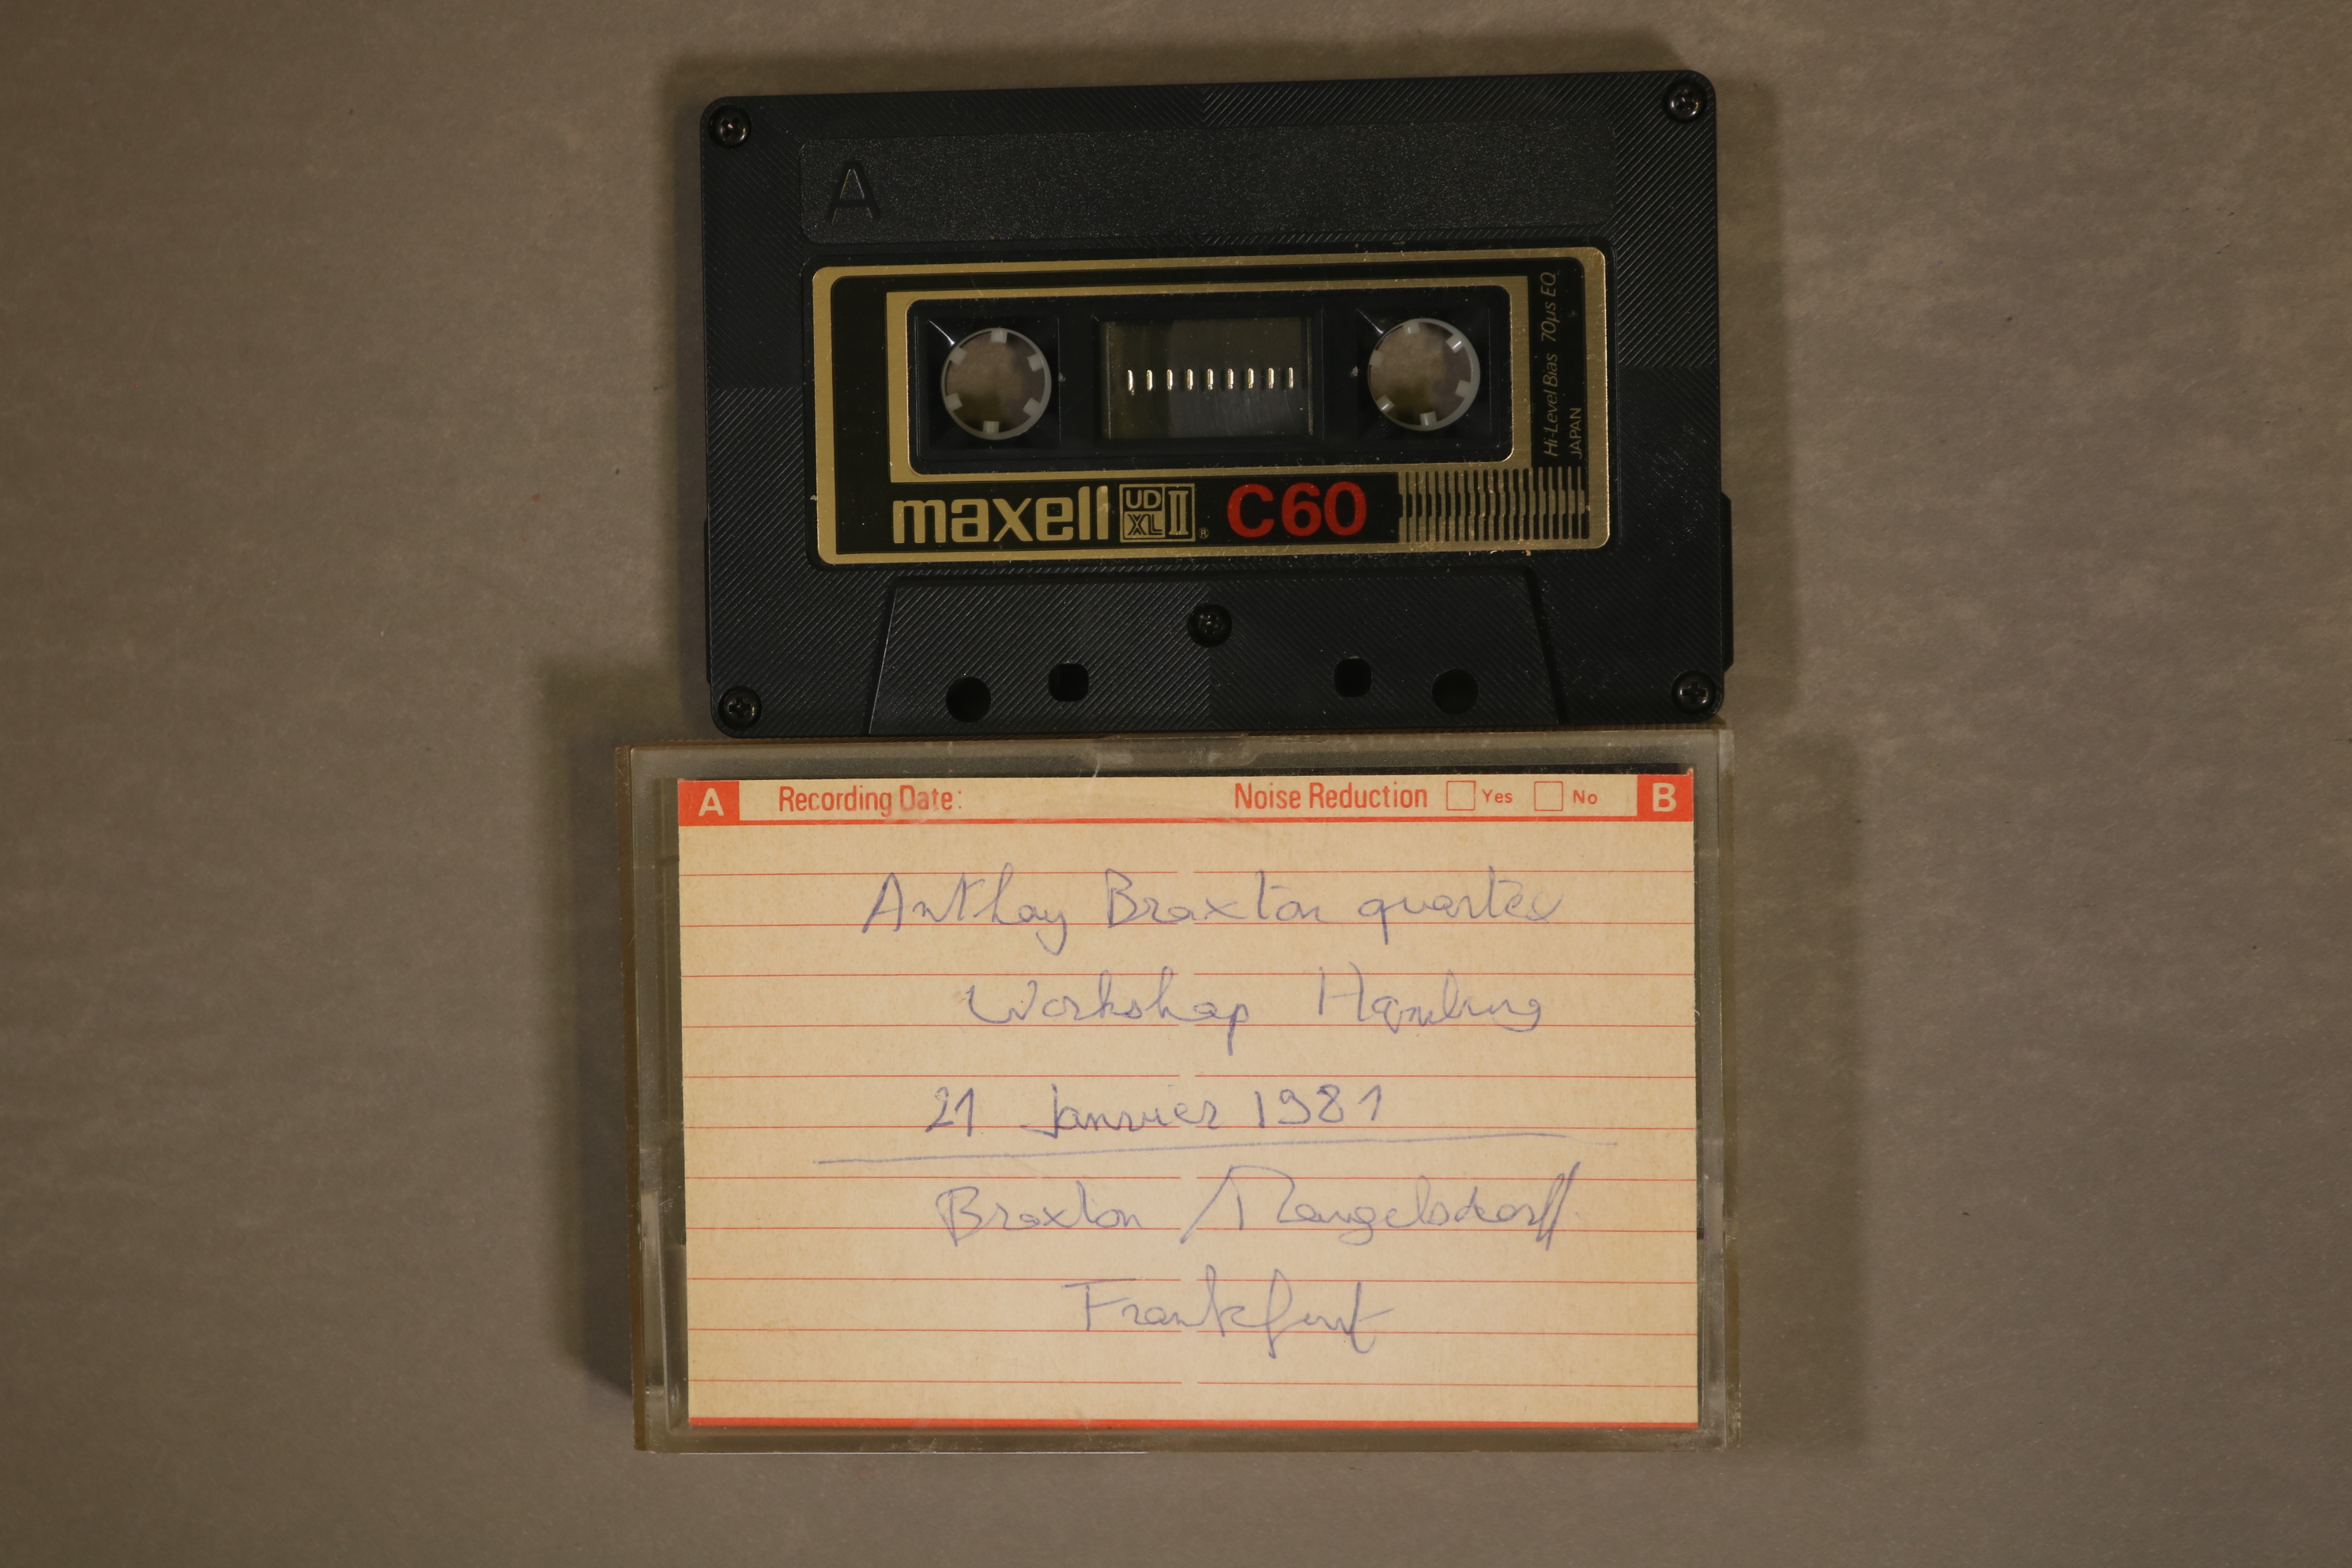 A
Hi-Level Bias 70µs EQ
JAPAN
maxell UD XL II ® C60
A Recording Date: Noise Reduction Yes No B
Anthoy Braxton quartex
Workshop Hamburg
21 Janvier 1981
Braxton / Mangelsdorff
Frankfurt